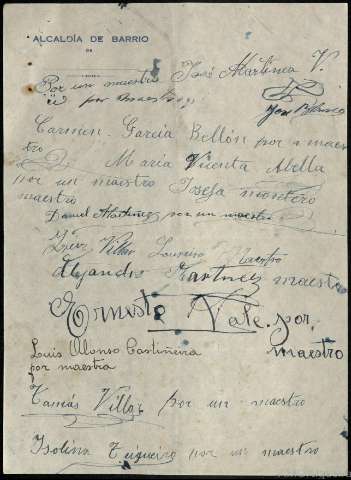 ALCALDÍA DE BARRIO
DE
Por un maestro José Martinez V.
por maestro José Blanco
Carmen García Bellón por maes
tro
Dª María Vicenta Abella
por un maestro Josefa montero
maestro
Daniel Martínez por un maestro
Luis Villar Loureiro Maestro
Alejandro Martinez maestro
Ernesto Vale. por
maestro
Luis Alonso Castiñeira
por maestra
Tomás Villar por un maestro
Isolina Teigueiro por un maestro